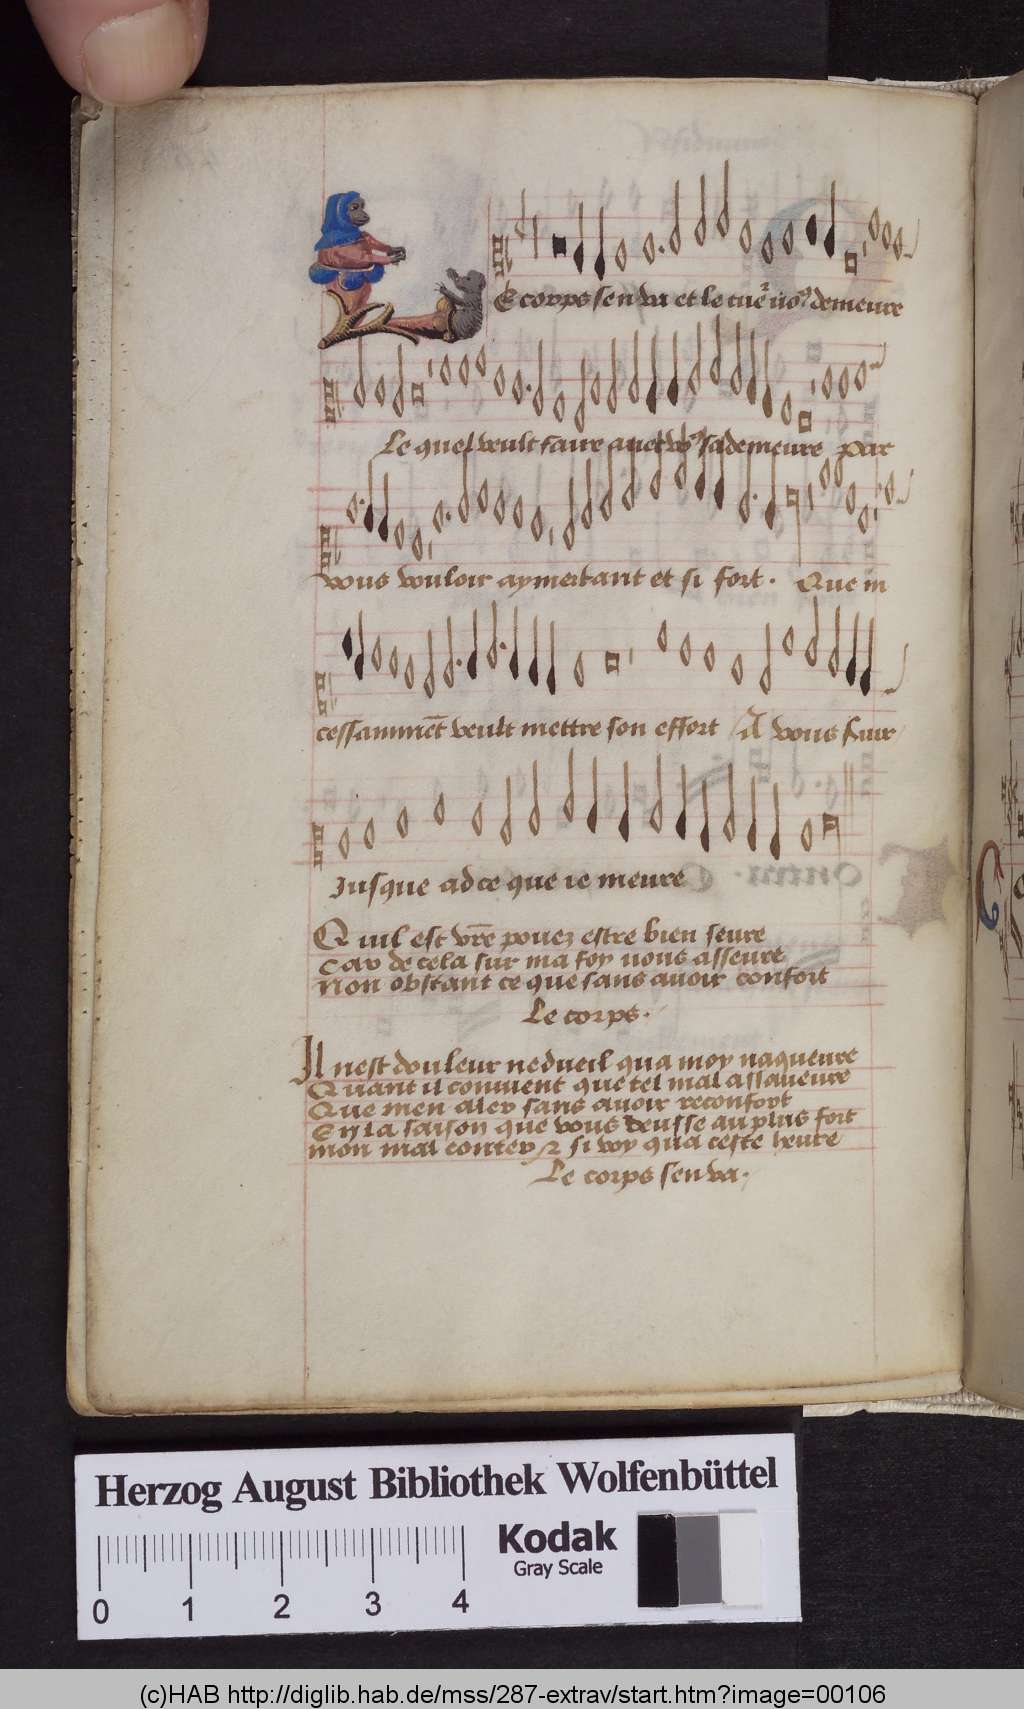 E corps sen va et le cuer vos demeure
Le quel veult faire auec vos sa demeure par
vous vouloir aymer tant et si fort. Que in
cessamment veult mettre son effort A vous seruir
Jusque ad ce que ie meure
Quil est vre pouez estre bien seure
Car de cela sur ma foy vous asseure
Non obstant ce que sans auoir confort
Le corps.
Il nest douleur ne dueil qua moy naqueure
Quant il conuient que tel mal assaueure
Que men aler sans auoir reconfort
En la saison que vous deusse au plus fort
mon mal conter et si voy qua ceste heure
Le corps sen va.
Herzog August Bibliothek Wolfenbüttel
Kodak
Gray Scale
0 1 2 3 4
(c)HAB http://diglib.hab.de/mss/287-extrav/start.htm?image=00106